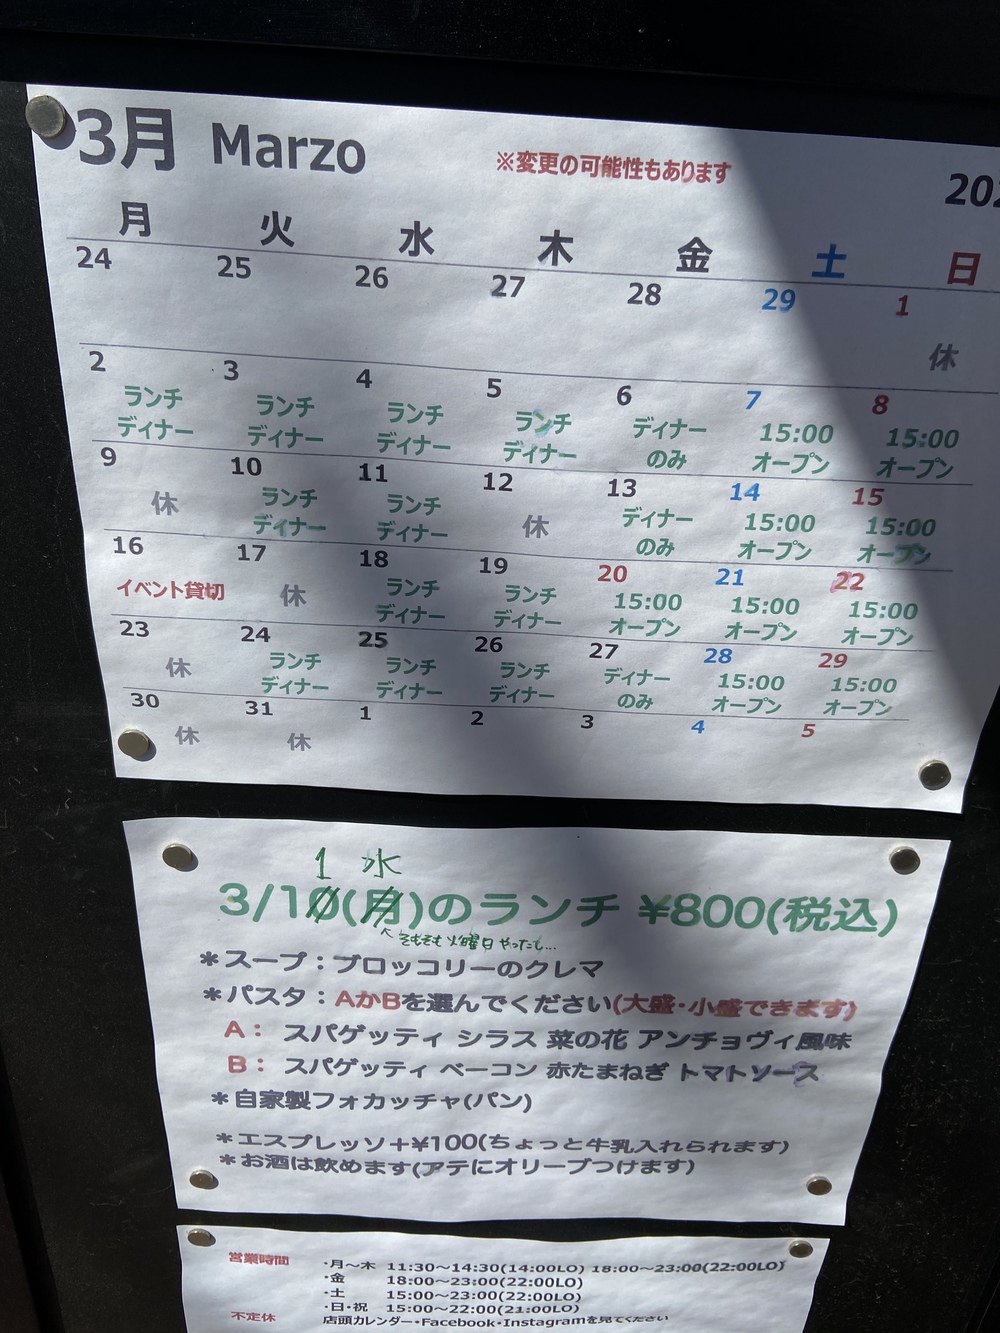 3月 Marzo ※変更の可能性もあります 202
月 火 水 木 金 土 日
24 25 26 27 28 29 1
休
2 3 4 5 6 7 8
ランチ ランチ ランチ ランチ ディナー 15:00 15:00
ディナー ディナー ディナー ディナー のみ オープン オープン
9 10 11 12 13 14 15
休 ランチ ランチ 休 ディナー 15:00 15:00
ディナー ディナー のみ オープン オープン
16 17 18 19 20 21 22
イベント貸切 休 ランチ ランチ 15:00 15:00 15:00
ディナー ディナー オープン オープン オープン
23 24 25 26 27 28 29
休 ランチ ランチ ランチ ディナー 15:00 15:00
ディナー ディナー ディナー のみ オープン オープン
30 31 1 2 3 4 5
休 休
1 水
3/10(月)のランチ ¥800(税込)
そもそも火曜日やったし…
*スープ：ブロッコリーのクレマ
*パスタ：AかBを選んでください(大盛・小盛できます)
A： スパゲッティ シラス 菜の花 アンチョヴィ風味
B： スパゲッティ ベーコン 赤たまねぎ トマトソース
*自家製フォカッチャ(パン)
*エスプレッソ＋¥100(ちょっと牛乳入れられます)
*お酒は飲めます(アテにオリーブつけます)
営業時間 ・月～木 11:30～14:30(14:00LO) 18:00～23:00(22:00LO)
・金 18:00～23:00(22:00LO)
・土 15:00～23:00(22:00LO)
・日・祝 15:00～22:00(21:00LO)
不定休 店頭カレンダー・Facebook・Instagramを見てください